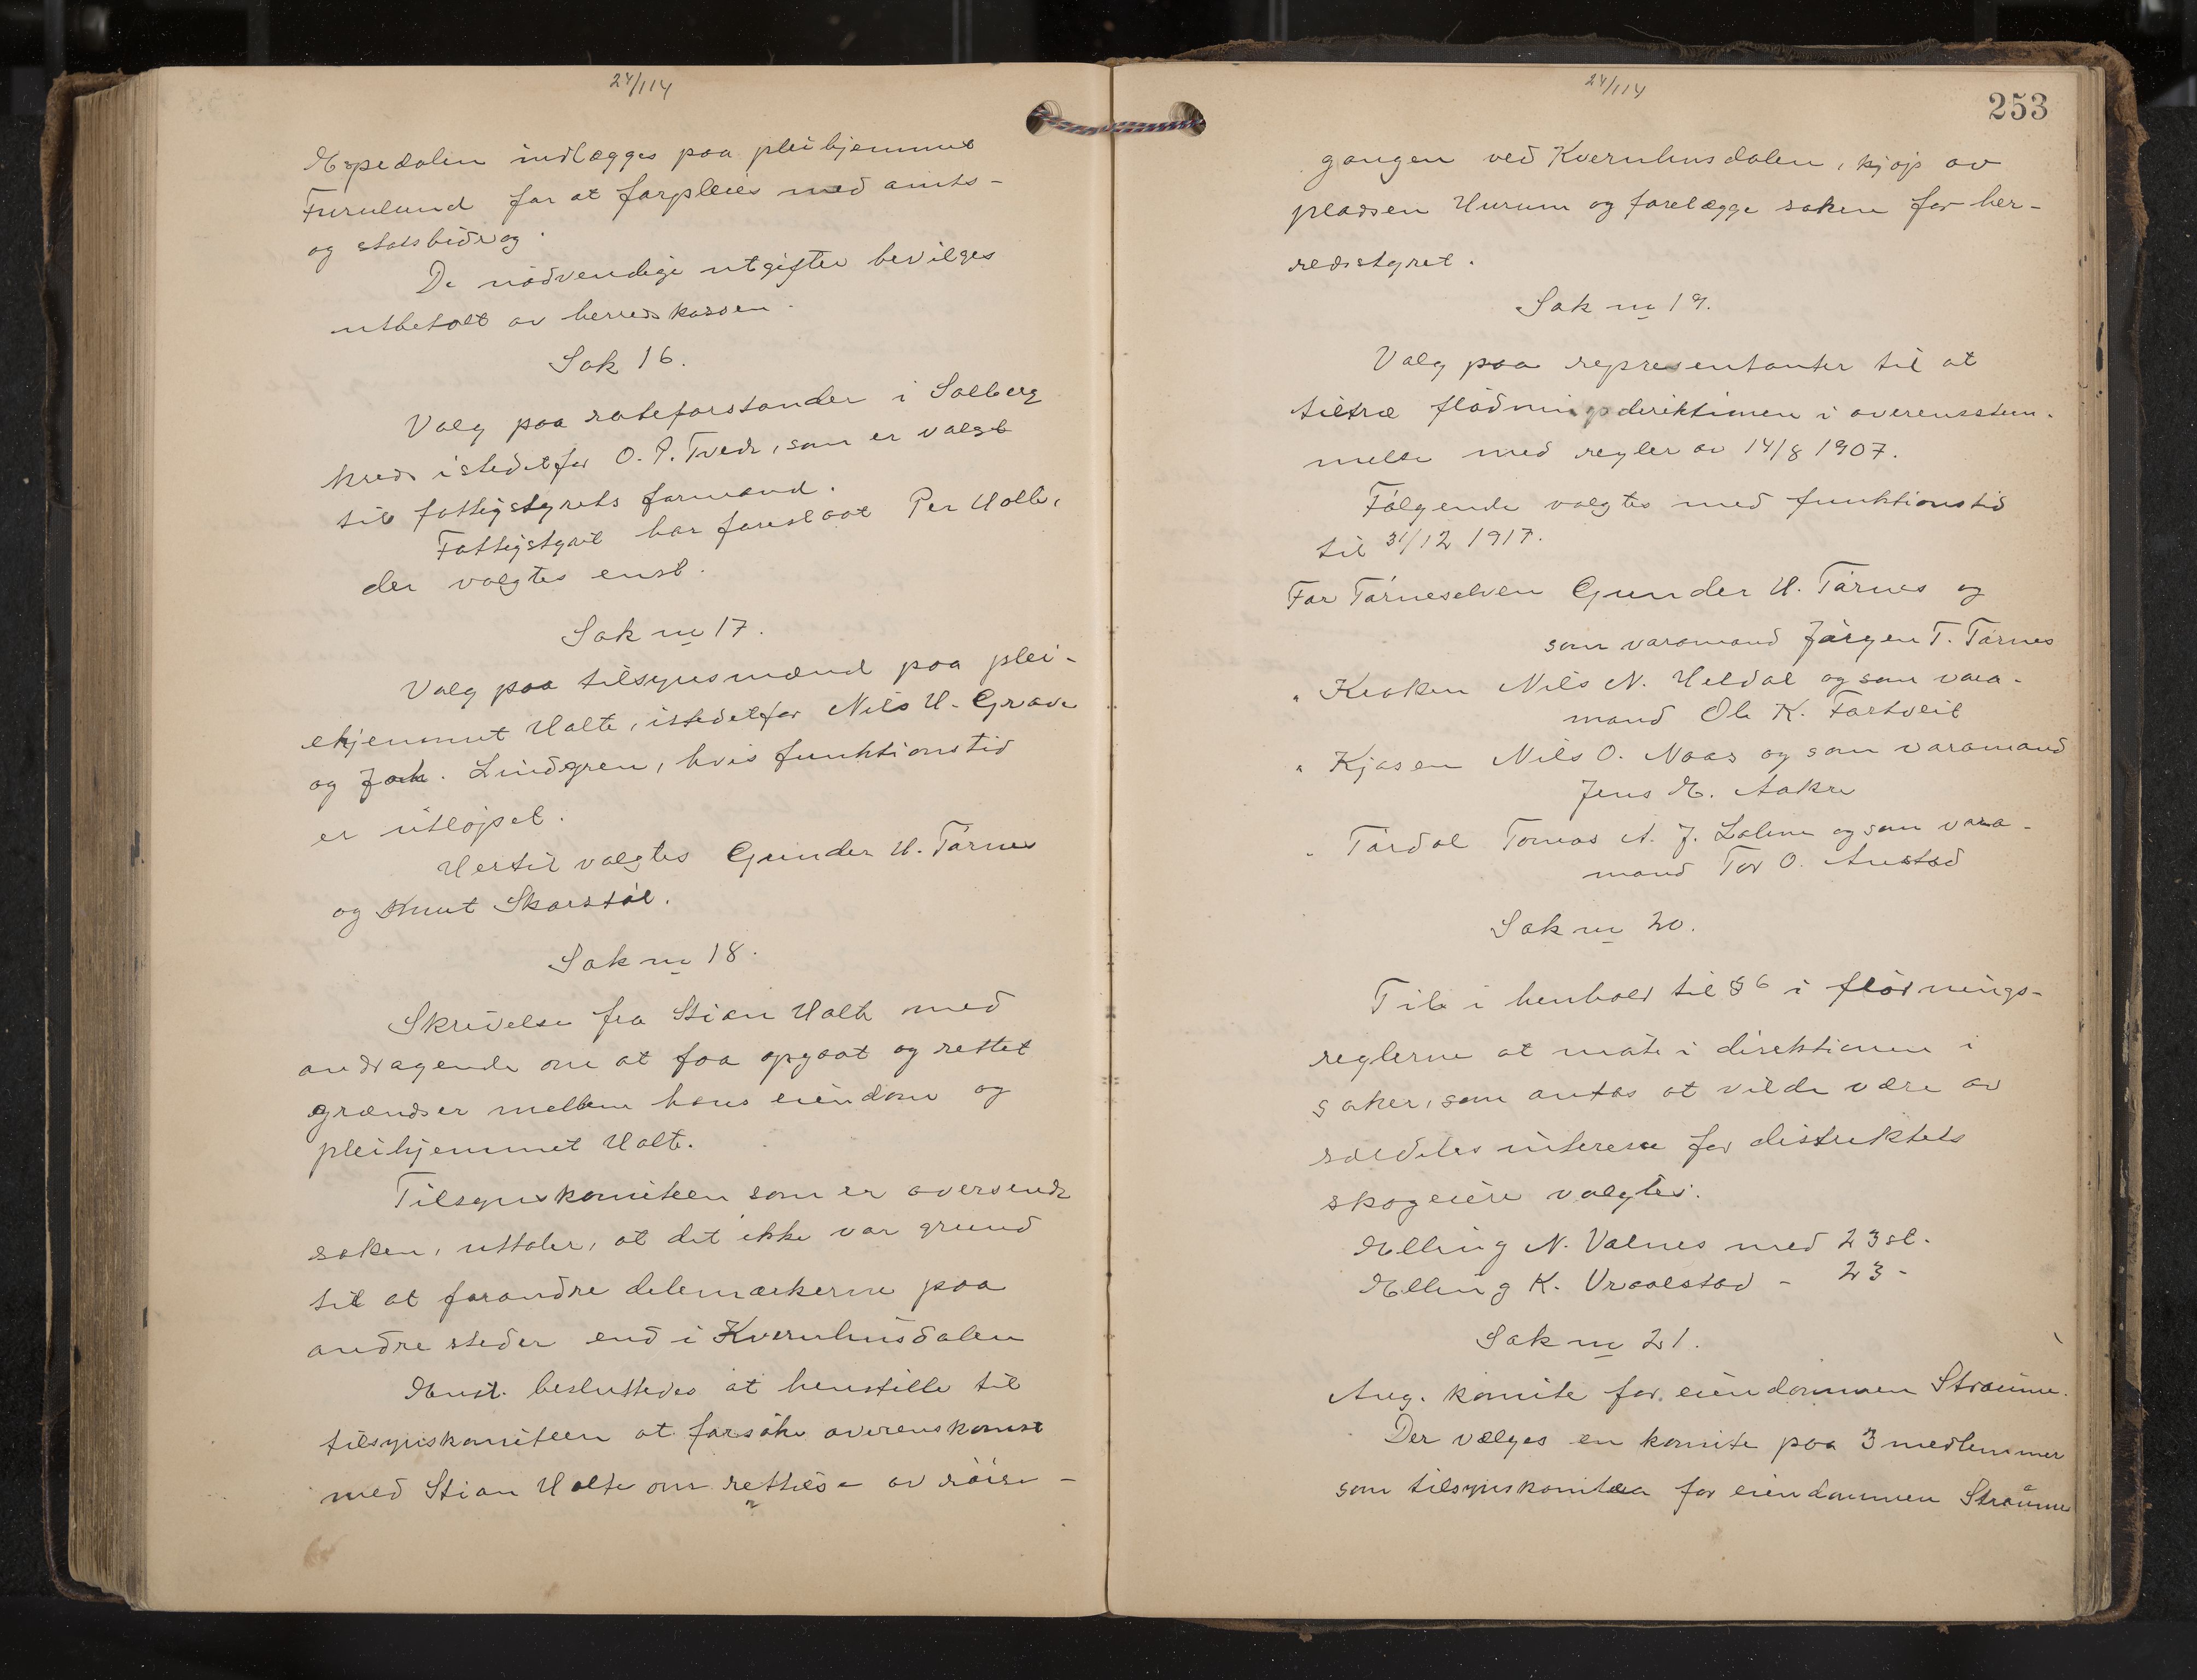 24/114
Espedalen indlægges paa pleiehjemmet
Furulund for at forpleies med amts-
og statsbidrag.
De nødvendige utgifter bevilges
utbetalt av herredskassen.
Sak 16.
Valg paa roteforstander i Solberg
kreds istedetfor O. P. Tvede, som er valgt
til fattigstyrets formand.
Fattigstyret har foreslaat Per Holte,
der valgtes enst.
Sak no 17.
Valg paa tilsynsmænd paa plei-
ehjemmet Holte, istedetfor Nils H. Grave
og Joh. Lindgren, hvis funktionstid
er utløpet.
Hertil valgtes Gunder H. Tørnes
og Knut Skarstøl.
Sak no 18.
Skrivelse fra Stian Holte med
andragende om at faa opgaat og rettet
grændser mellem hans eiendom og
pleihjemmet Holte.
Tilsynskomiteen som er oversendt
saken, uttaler, at det ikke var grund
til at forandre delemerkerne paa
andre steder end i Kvernhusdalen
Enst. besluttedes at henstille til
tilsynskomiteen at forsøke overenskomst
med Stian Holte om rettelse av røise-
24/114
253
gangen ved Kvernhusdalen, kjøp av
pladsen Hurum og forelægge saken for her-
redsstyret.
Sak no 19.
Valg paa representanter til at
tiltræ flødningsdirektionen i overensstem-
melse med regler av 14/8 1907.
Følgende valgtes med funktionstid
til 31/12 1917.
For Tørneselven Gunder H. Tørnes og
som varamand Jørgen T. Tørnes
" Kroken Nils N. Heldal og som vara-
mand Ole K. Fartveit
" Kjøsen Nils O. Naas og som varamand
Jens E. Aakre
" Tørdal Tomas A. J. Lalien og som vara-
mand Tor O. Austad
Sak no 20.
Til i henhold til § 6 i flødnings-
reglerne at møte i direktionen i
saker, som antas at vilde være av
særdeles interesse for distriktets
skogeiere valgtes:
Elling N. Valnes med 23 st.
Elling K. Vraalstad - 23 -
Sak no 21.
Ang. komite for eiendommen Straume.
Der vælges en komite paa 3 medlemmer
som tilsynskomitea for eiendommen Straume